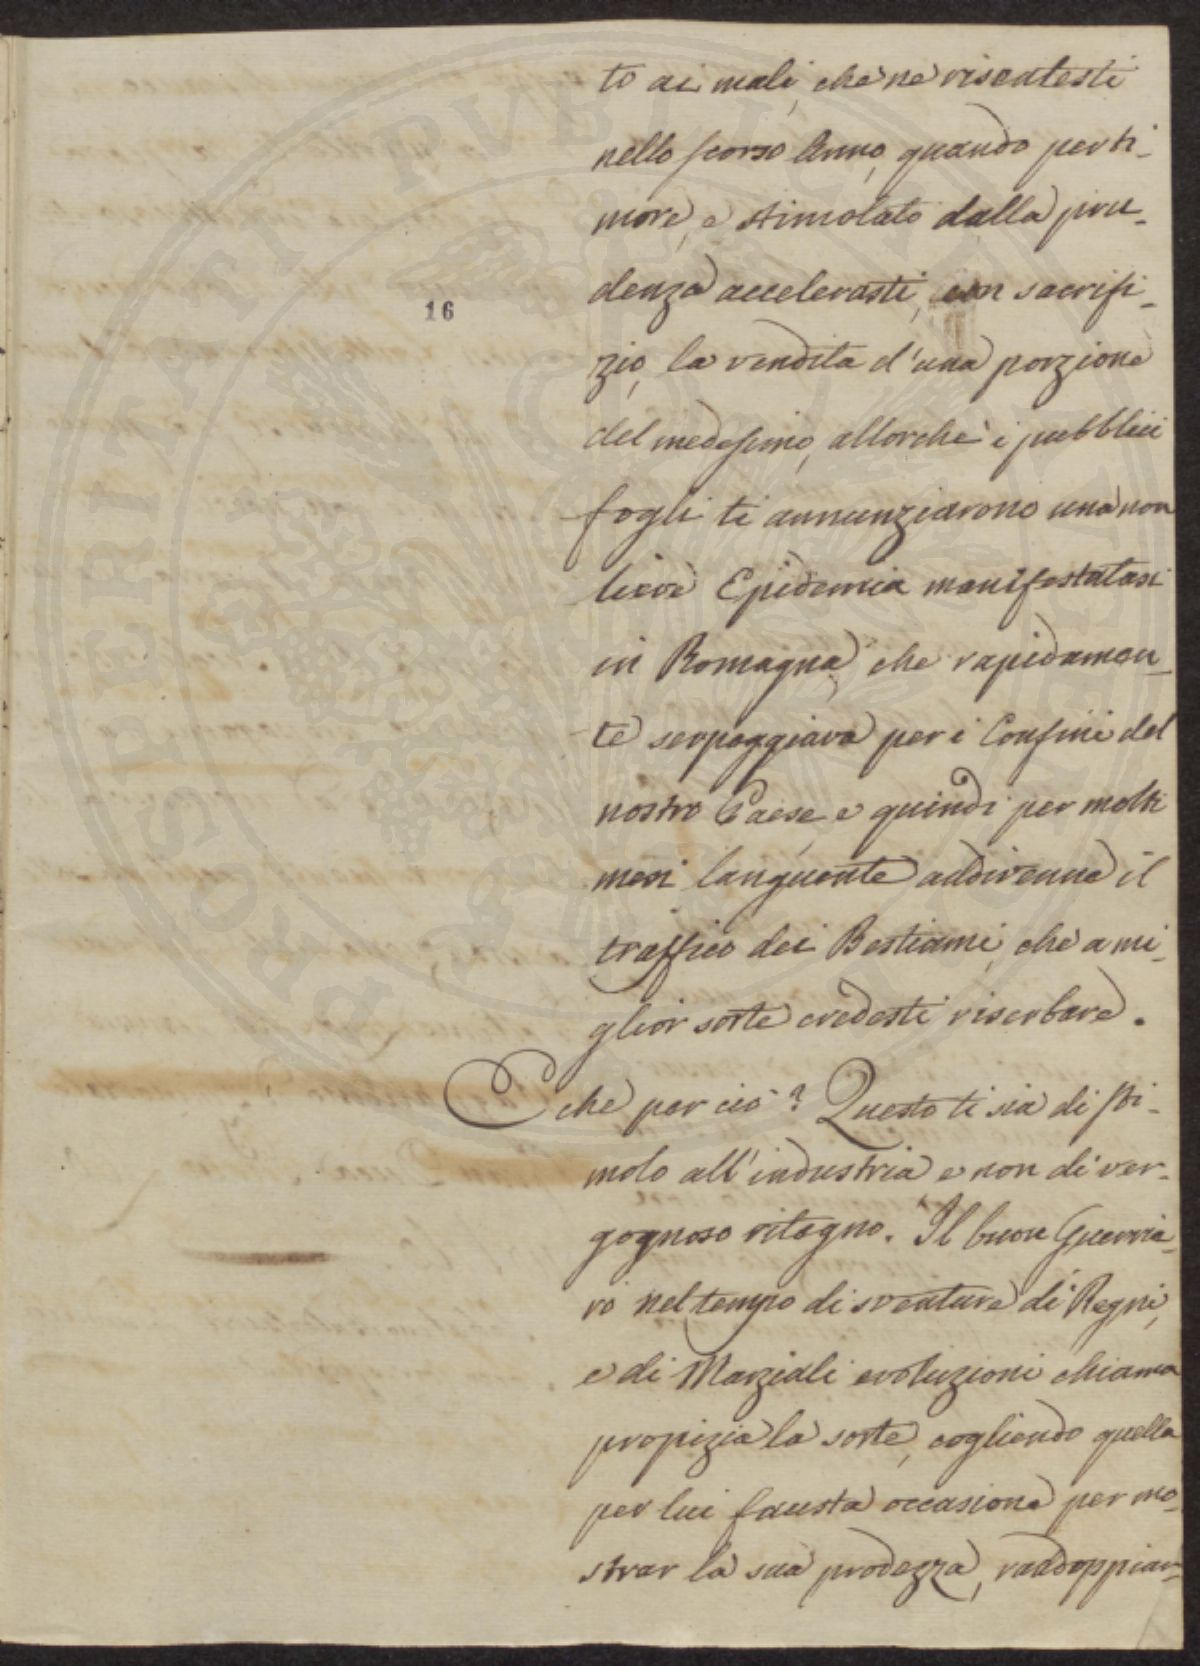 to ai mali, che ne risentesti
nello scorso Anno, quando per ti-
more, e stimolato dalla pru-
denza accelerasti, con sacrifi-
16
zio, la vendita d'una porzione
del medesimo, allorchè i pubblici
fogli ti annunziarono una non
lieve Epidemia manifestatasi
in Romagna, che rapidamen-
te serpeggiava per i Confini del
nostro Paese, e quindi per molti
mesi languente addivenne il
traffico dei Bestiami, che a mi-
glior sorte credesti riserbare.
E che per ciò? Questo ti sia di sti-
molo all'industria e non di ver-
gognoso ritegno. Il buon Guerrie-
ro nel tempo di sventure di Regni,
e di Marziali evoluzioni chiama
propizia la sorte, cogliendo quella
per lui fausta occasione per mo-
strar la sua prodezza, raddoppian-
PROSPERITASI PVBLICAE